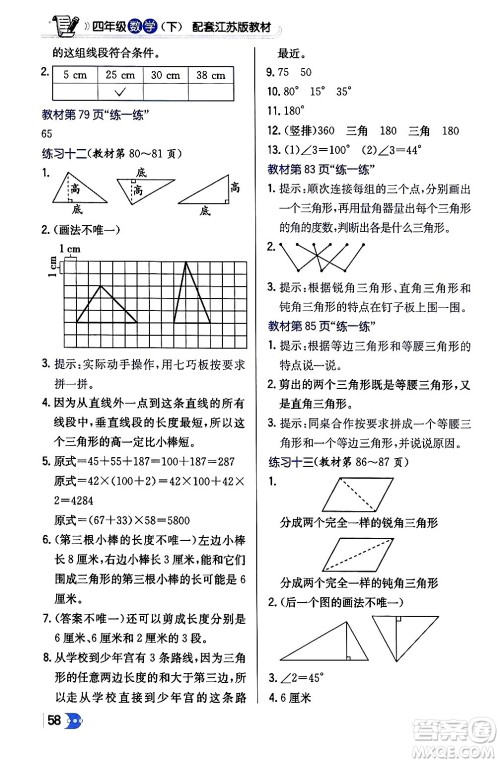 四年级数学(下) 配套江苏版教材
的这组线段符合条件。
2. 5 cm 25 cm 30 cm 38 cm
✓
教材第 79 页“练一练”
65
练习十二(教材第 80~81 页)
1. 高 底 高 底
2. (画法不唯一)
1 cm
1 cm
3. 提示:实际动手操作,用七巧板按要求
拼一拼。
4. 因为从直线外一点到这条直线的所有
线段中,垂直线段的长度最短,所以这
个三角形的高一定比小棒短。
5. 原式=45+55+100+187=100+187
=287 原式=42×(2+100)=42×102
=4284
原式=(67+33)×58=5800
6. (第三根小棒的长度不唯一)左边小棒
长 6 厘米,右边小棒长 8 厘米,能和它们
围成三角形的第三根小棒的长度可以是
6 厘米。
7. (答案不唯一)可以剪成长度分别是
6 厘米、4 厘米、2 厘米的 3 段。
8. 从学校到少年宫有 3 条路线,因为三角
形的任意两边长度的和大于第三边,所
以走从学校直接到少年宫的这条路
58
最近。
9. 75 50
10. 80° 15° 90°
11. 180°
12. (竖排)360 三角 180 三角 180
13. (1)∠3=60° (2)∠3=45°
教材第 83 页“练一练”
1. 提示:顺次连接每组的三个点,分别画出
一个三角形,再用量角器量出每个三角形
的角的度数,判断出各是什么三角形。
2.
3. 提示:根据锐角三角形、直角三角形和
钝角三角形的特点在钉子板上围一围。
教材第 85 页“练一练”
1. 提示:根据等边三角形和等腰三角形的
特点说一说。
2. 剪出的两个三角形既是等腰三角形,
又是直角三角形。
3. 提示:同桌合作按要求拼成一个大三
角形,再结合拼成的图形说明原因。
练习十三(教材第 86~87 页)
1.
分成两个完全一样的锐角三角形
分成两个完全一样的钝角三角形
2. (后一个图的画法不唯一)
3. ∠2=45°
4. 6 厘米
答案圈
MXQE.COM